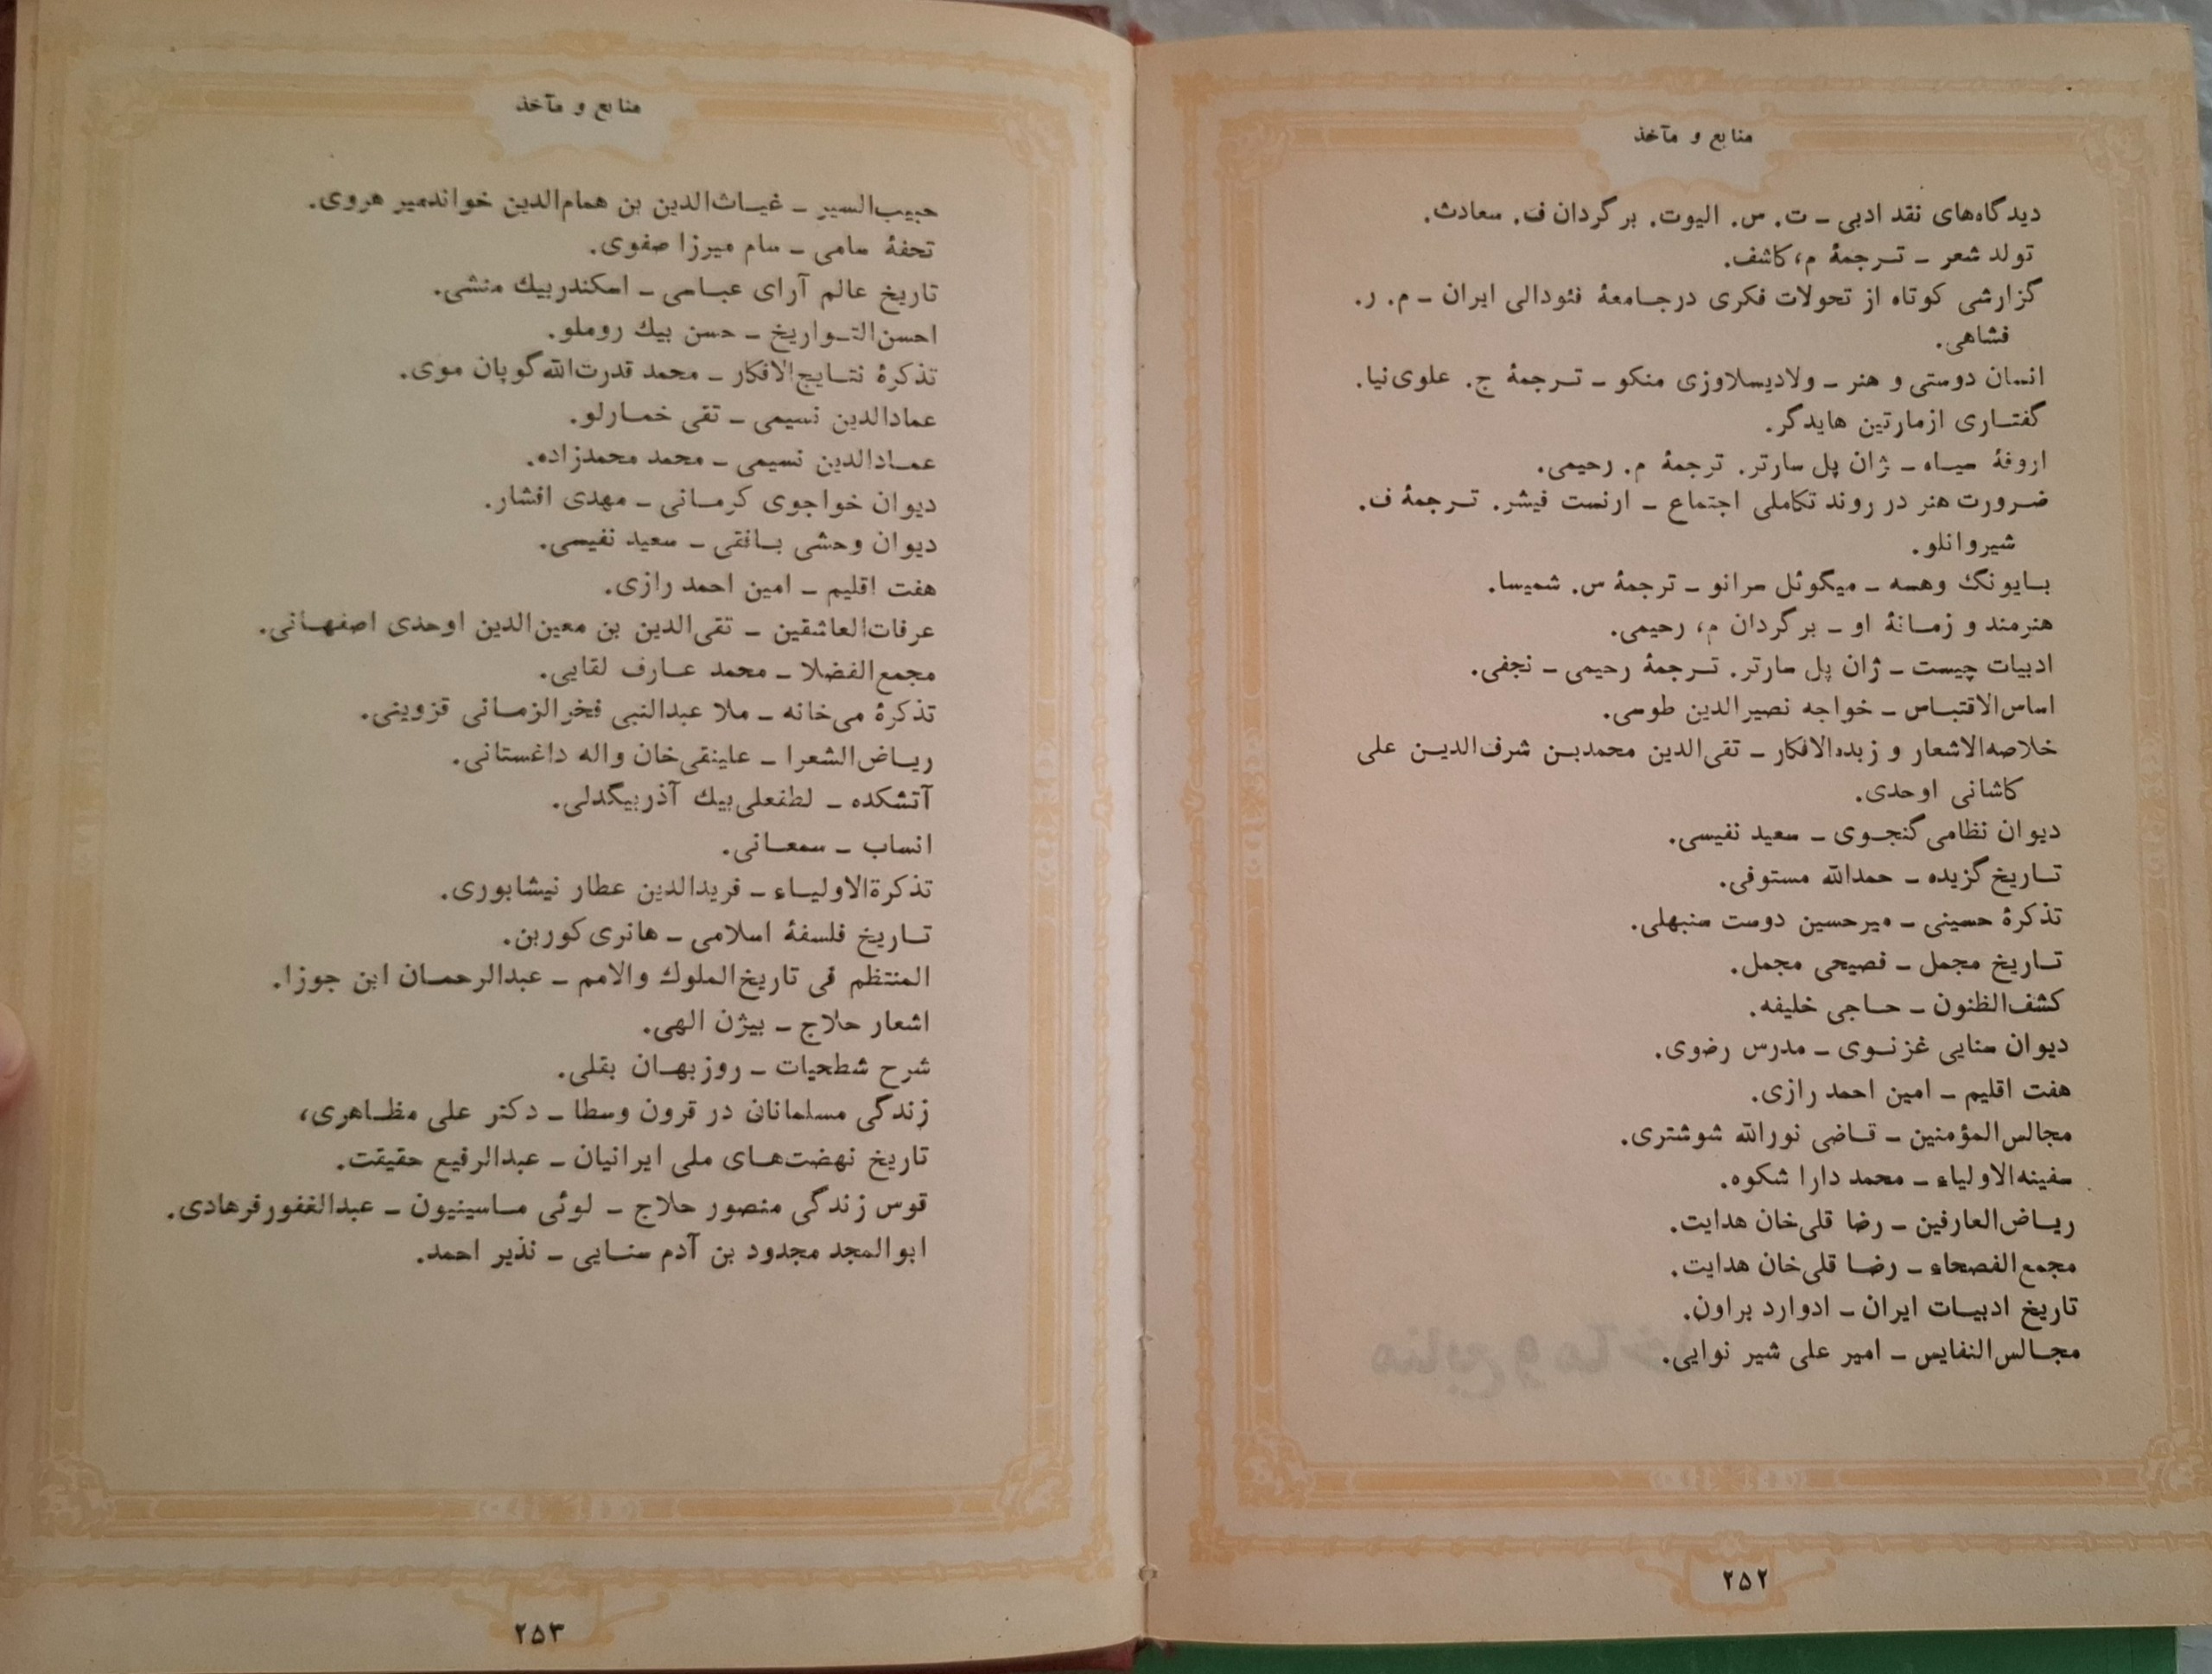 منابع و مآخذ
دیدگاه‌های نقد ادبی ـ ت. س. الیوت. برگردان ف. سعادت.
تولد شعر ـ ترجمۀ م، کاشف.
گزارشی کوتاه از تحولات فکری درجامعۀ فئودالی ایران ـ م. ر.
فشاهی.
انسان دوستی و هنر ـ ولادیسلاوزی منکو ـ ترجمۀ ج. علوی‌نیا.
گفتاری ازمارتین هایدگر.
اروفۀ سیاه ـ ژان پل سارتر. ترجمۀ م. رحیمی.
ضرورت هنر در روند تکاملی اجتماع ـ ارنست فیشر. ترجمۀ ف.
شیروانلو.
بایونگ وهسه ـ میگوئل سرانو ـ ترجمۀ س. شمیسا.
هنرمند و زمانۀ او ـ برگردان م، رحیمی.
ادبیات چیست ـ ژان پل سارتر. ترجمۀ رحیمی ـ نجفی.
اساس‌الاقتباس ـ خواجه نصیرالدین طوسی.
خلاصه‌الاشعار و زبده‌الافکار ـ تقی‌الدین محمدبن شرف‌الدین علی
کاشانی اوحدی.
دیوان نظامی گنجوی ـ سعید نفیسی.
تاریخ گزیده ـ حمدالله مستوفی.
تذکرۀ حسینی ـ میرحسین دوست سنبهلی.
تاریخ مجمل ـ فصیحی مجمل.
کشف‌الظنون ـ حاجی خلیفه.
دیوان سنایی غزنوی ـ مدرس رضوی.
هفت اقلیم ـ امین احمد رازی.
مجالس‌المؤمنین ـ قاضی نورالله شوشتری.
سفینه‌الاولیاء ـ محمد دارا شکوه.
ریاض‌العارفین ـ رضا قلی‌خان هدایت.
مجمع‌الفصحاء ـ رضا قلی‌خان هدایت.
تاریخ ادبیات ایران ـ ادوارد براون.
مجالس‌النفایس ـ امیر علی شیر نوایی.
۲۵۲
منابع و مآخذ
حبیب‌السیر ـ غیاث‌الدین بن همام‌الدین خواندمیر هروی.
تحفۀ سامی ـ سام میرزا صفوی.
تاریخ عالم آرای عباسی ـ اسکندربیك منشی.
احسن‌التواریخ ـ حسن بیك روملو.
تذکرۀ نتایج‌الافکار ـ محمد قدرت‌الله گوپان موی.
عمادالدین نسیمی ـ تقی خمارلو.
عمادالدین نسیمی ـ محمد محمدزاده.
دیوان خواجوی کرمانی ـ مهدی افشار.
دیوان وحشی بافقی ـ سعید نفیسی.
هفت اقلیم ـ امین احمد رازی.
عرفات‌العاشقین ـ تقی‌الدین بن معین‌الدین اوحدی اصفهانی.
مجمع‌الفضلا ـ محمد عارف لقایی.
تذکرۀ می‌خانه ـ ملا عبدالنبی فخرالزمانی قزوینی.
ریاض‌الشعرا ـ علینقی‌خان واله داغستانی.
آتشکده ـ لطفعلی‌بیك آذربیگدلی.
انساب ـ سمعانی.
تذکرةالاولیاء ـ فریدالدین عطار نیشابوری.
تاریخ فلسفۀ اسلامی ـ هانری کوربن.
المنتظم فی تاریخ‌الملوك والامم ـ عبدالرحمان ابن جوزا.
اشعار حلاج ـ بیژن الهی.
شرح شطحیات ـ روزبهان بقلی.
زندگی مسلمانان در قرون وسطا ـ دکتر علی مظاهری،
تاریخ نهضت‌های ملی ایرانیان ـ عبدالرفیع حقیقت.
قوس زندگی منصور حلاج ـ لوئی ماسینیون ـ عبدالغفورفرهادی.
ابوالمجد مجدود بن آدم سنایی ـ نذیر احمد.
۲۵۳